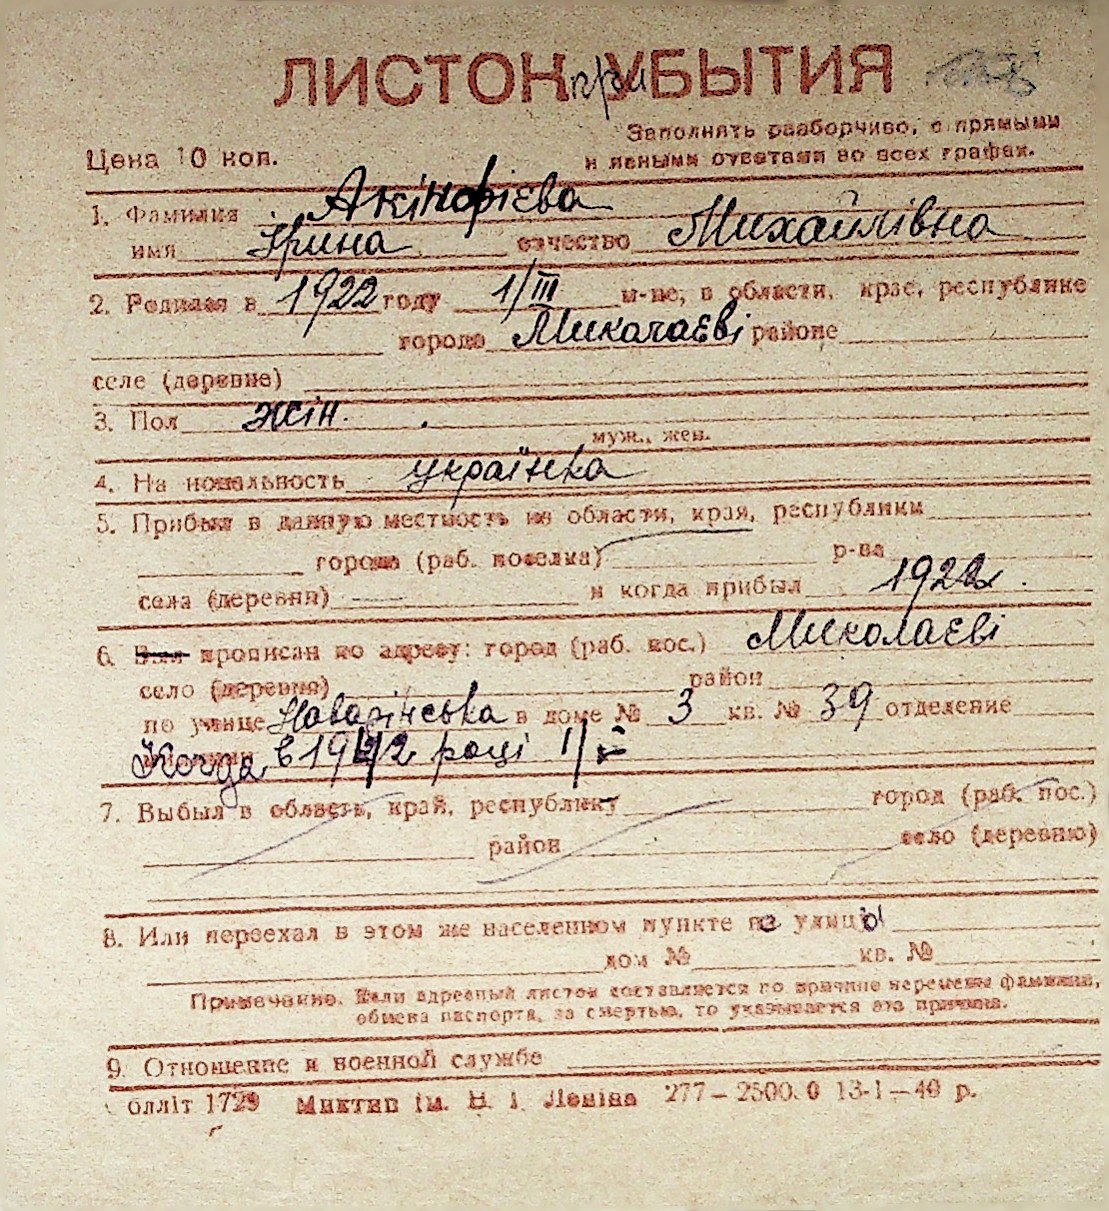 ЛИСТОК при УБЫТИЯ
Заполнять разборчиво, с прямыми
Цена 10 коп. и ясными ответами во всех графах.
1. Фамилия Акінфієва
имя Ірина отчество Михайлівна
2. Родился в 1922 году 1/III м-це, в области, крае, республике
городе Миколаєві районе
селе (деревне)
3. Пол жін.
муж., жен.
4. Национальность українка
5. Прибыл в данную местность из области, края, республики
города (раб. поселка) р-на
села (деревни) и когда прибыл 1922
6. Был прописан по адресу: город (раб. пос.) Миколаєві
село (деревня) район
по улице Наварінська в доме № 3 кв. № 39 отделение
милиции Когда в 1942 році 1/
7. Выбыл в область, край, республику город (раб. пос.)
район село (деревню)
8. Или переехал в этом же населенном пункте на улицы
дом № кв. №
Примечание. Если адресный листок составляется по причине перемены фамилии,
обмена паспорта, за смертью, то указывается эта причина.
9. Отношение к военной службе
облліт 1729 Миктип ім. В. І. Леніна 277—2500.0 13-1—40 р.